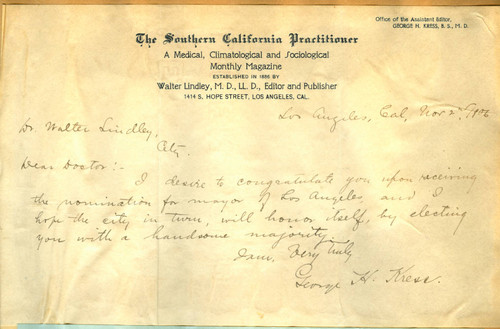 Office of the Assistant Editor,
GEORGE H. KRESS, B. S., M. D.
The Southern California Practitioner
A Medical, Climatological and Sociological
Monthly Magazine
ESTABLISHED IN 1886 BY
Walter Lindley, M. D., LL. D., Editor and Publisher
1414 S. HOPE STREET, LOS ANGELES, CAL.
Los Angeles, Cal, Nov 2, 1906
Dr. Walter Lindley,
City.
Dear Doctor:-
I desire to congratulate you upon receiving
the nomination for mayor of Los Angeles, and I
hope the city in turn, will honor itself, by electing
you with a handsome majority.
I am, Very truly,
George H. Kress.